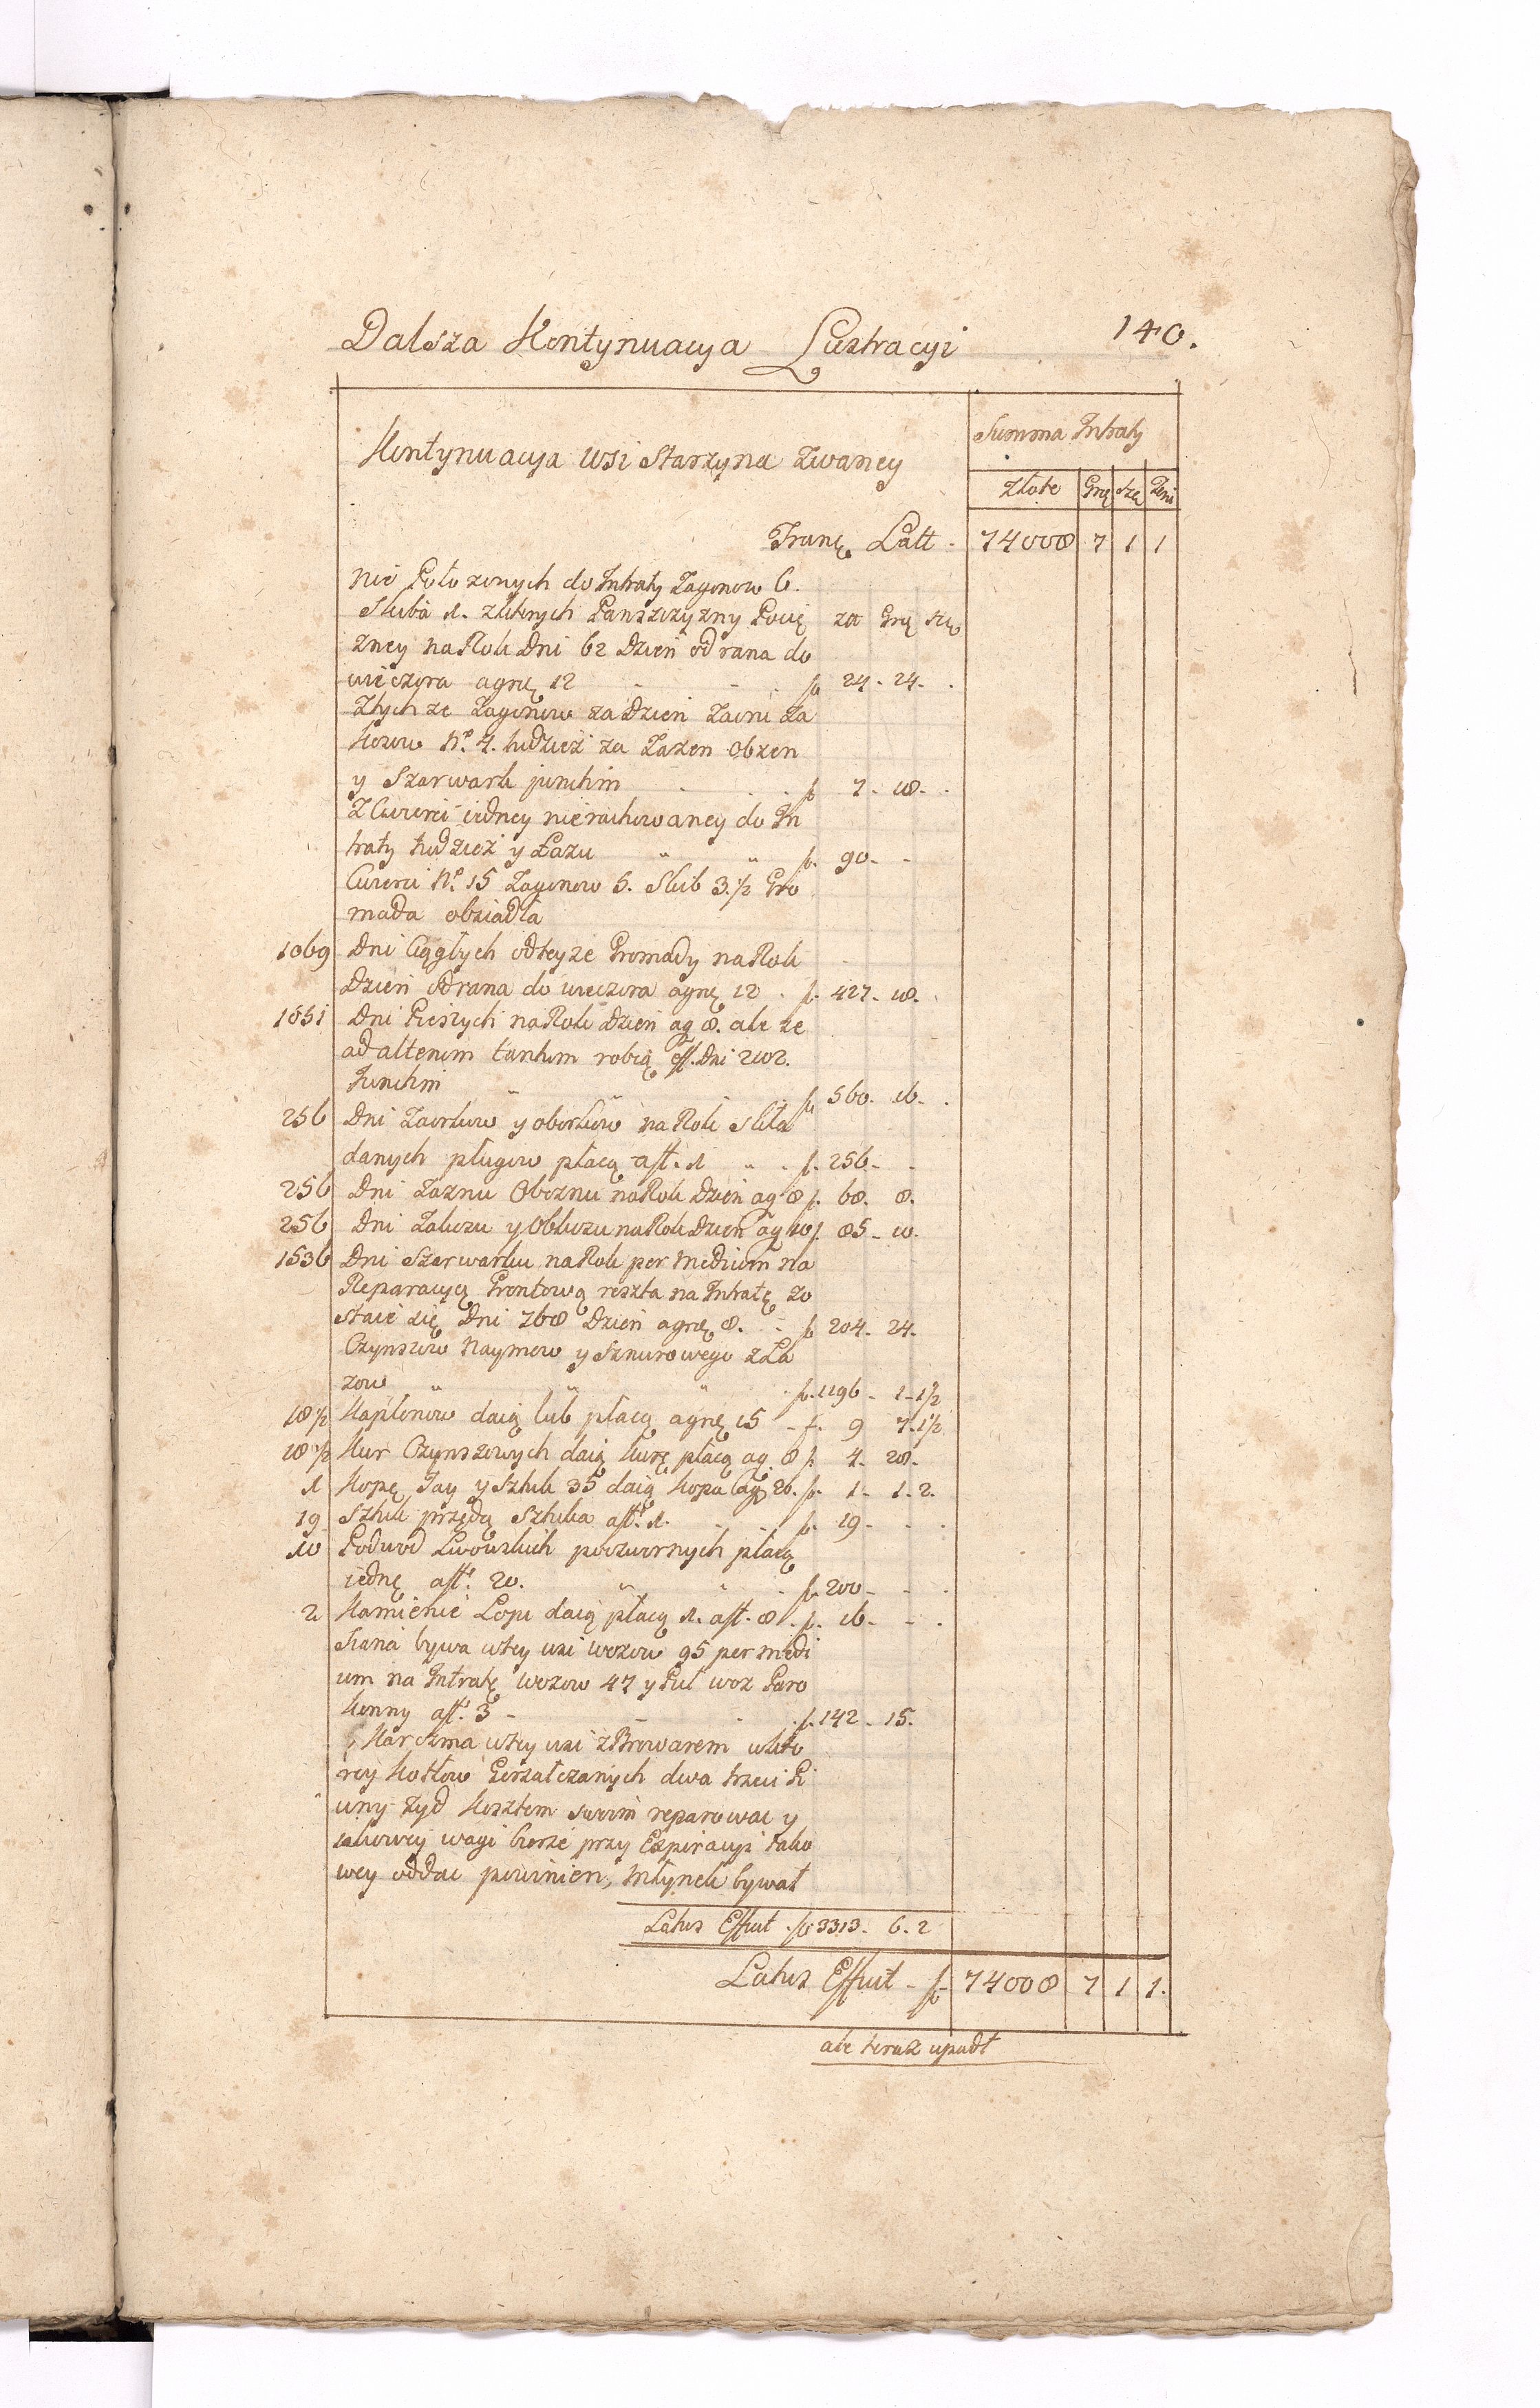 Dalsza Kontynuacya Lustracyi 140.
Kontynuacya wsi Starzyna zwaney
Summa Intraty
Złote Grę Sze Deni
Trunę Latt - 74008 7 1 1
nie Położonych do Intraty Zagonow 6.
Sluba 1. z ktorych Panszczyzny Pocią zł Grę Szę
zney na Rok Dni 62 Dzień od rana do
wieczora agrę 12 - - . f 24 - 24 - .
Z tych ze Zagonow za Dzień
Kosow No. 4. tudzież za Zazen Obzen
y Szarwark junctim - . . f 7 - 18 - .
Z Cwierci iedney nierachowaney do In
traty tudzież y Łazu " " f. 90 - -
Cwierci No. 15 Zagonow 5. Slub 3. 1/2 Gro
mada obsiadła
1069 Dni Ciągłych od teyze Gromady na Rok
Dzień od rana do wieczora agrę 12 . f. 427 - 18.
1051 Dni Pieszych na Rok dzień ag 8. ale ze
ad alterum tantum robią eff. Dni 2102.
Junctim " " . f 560. 16. .
256 Dni Zaorkow y oborkow na Rok skła
danych pługow płacą a ff. 1 " . f. 256 - -
256 Dni Zaznu Oboznu na Rok Dzień ag 8 f. 68. 8.
256 Dni Zaluzu y Obkuzu na Rok Dzień ag 10 f. 85 - 10.
1536 Dni Szarwarku na Rok per medium na
Reparacyą Grontową reszta na Intratę zo
staie się Dni 768 Dzień agrę 8. . - f 204. 24.
Czynszow Naymow y Sznurowego z Ła
zow " " " . f. 1196 - 1 - 1 1/2
18 1/2 Kapłonow daią lub płacą agrę 15 - f. 9 7. 1 1/2
18 1/2 Kur Czynszowych daią kurę płacą ag. 8 f. 4. 28.
1 Kopę Jay y Sztuk 35 daią kopa ag 26. f. 1 - 1. 2.
19 Sztuk przędą Sztuka a ff. 1. - . . f. 19 - - .
10 Podwod Lwowskich pozwornych płacą
iednę a ff. 20. " " . f. 200 - - .
2 Kamienie Łoju daią płacą 1. a ff. 8 . f. 16 - - .
Siana bywa w tey wsi wozow 95 per medi
um na Intratę wozow 47 y Puł woz Paro
konny a ff. 3 - - - . f. 142 - 15.
Karczma w tey wsi z Browarem w kto
rey Kotłow Gorzałczanych dwa trzeci Pi
wny Zyd Kosztem swoim reparowac y
takowey wagi biorze przy Expiracyi tako
wey oddac powinien, młynek bywał
Latus Effiut . f 3313 - 6. 2
Latus Effiut - f 74008 7 1 1.
ale teraz upadł